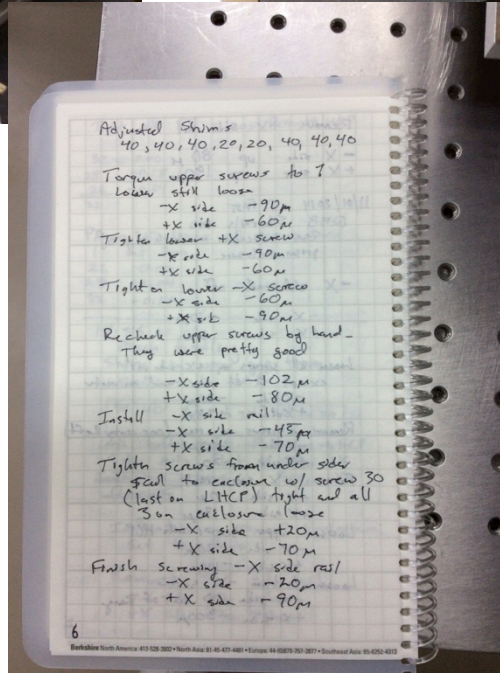 Adjusted Shims
40, 40, 40, 20, 20, 40, 40, 40
Torque upper screws to 7
Lower still loose
-X side -90µ
+X side -60µ
Tighten lower +X screw
-X side -90µ
+X side -60µ
Tighten lower -X screw
-X side -60µ
+X side -90µ
Recheck upper screws by hand -
They were pretty good
-X side -102µ
+X side -80µ
Install -X side rail
-X side -45µ
+X side -70µ
Tighten screws from under side
to enclosure w/ screw 30
(last on LHCP) tight and all
3 on enclosure loose
-X side +20µ
+X side -70µ
Finish screwing -X side rail
-X side -20µ
+X side -90µ
6
Berkshire North America: 413-528-3602 • North Asia: 81-45-477-4461 • Europe: 44-(0)870-757-2877 • Southeast Asia: 65-6252-4313